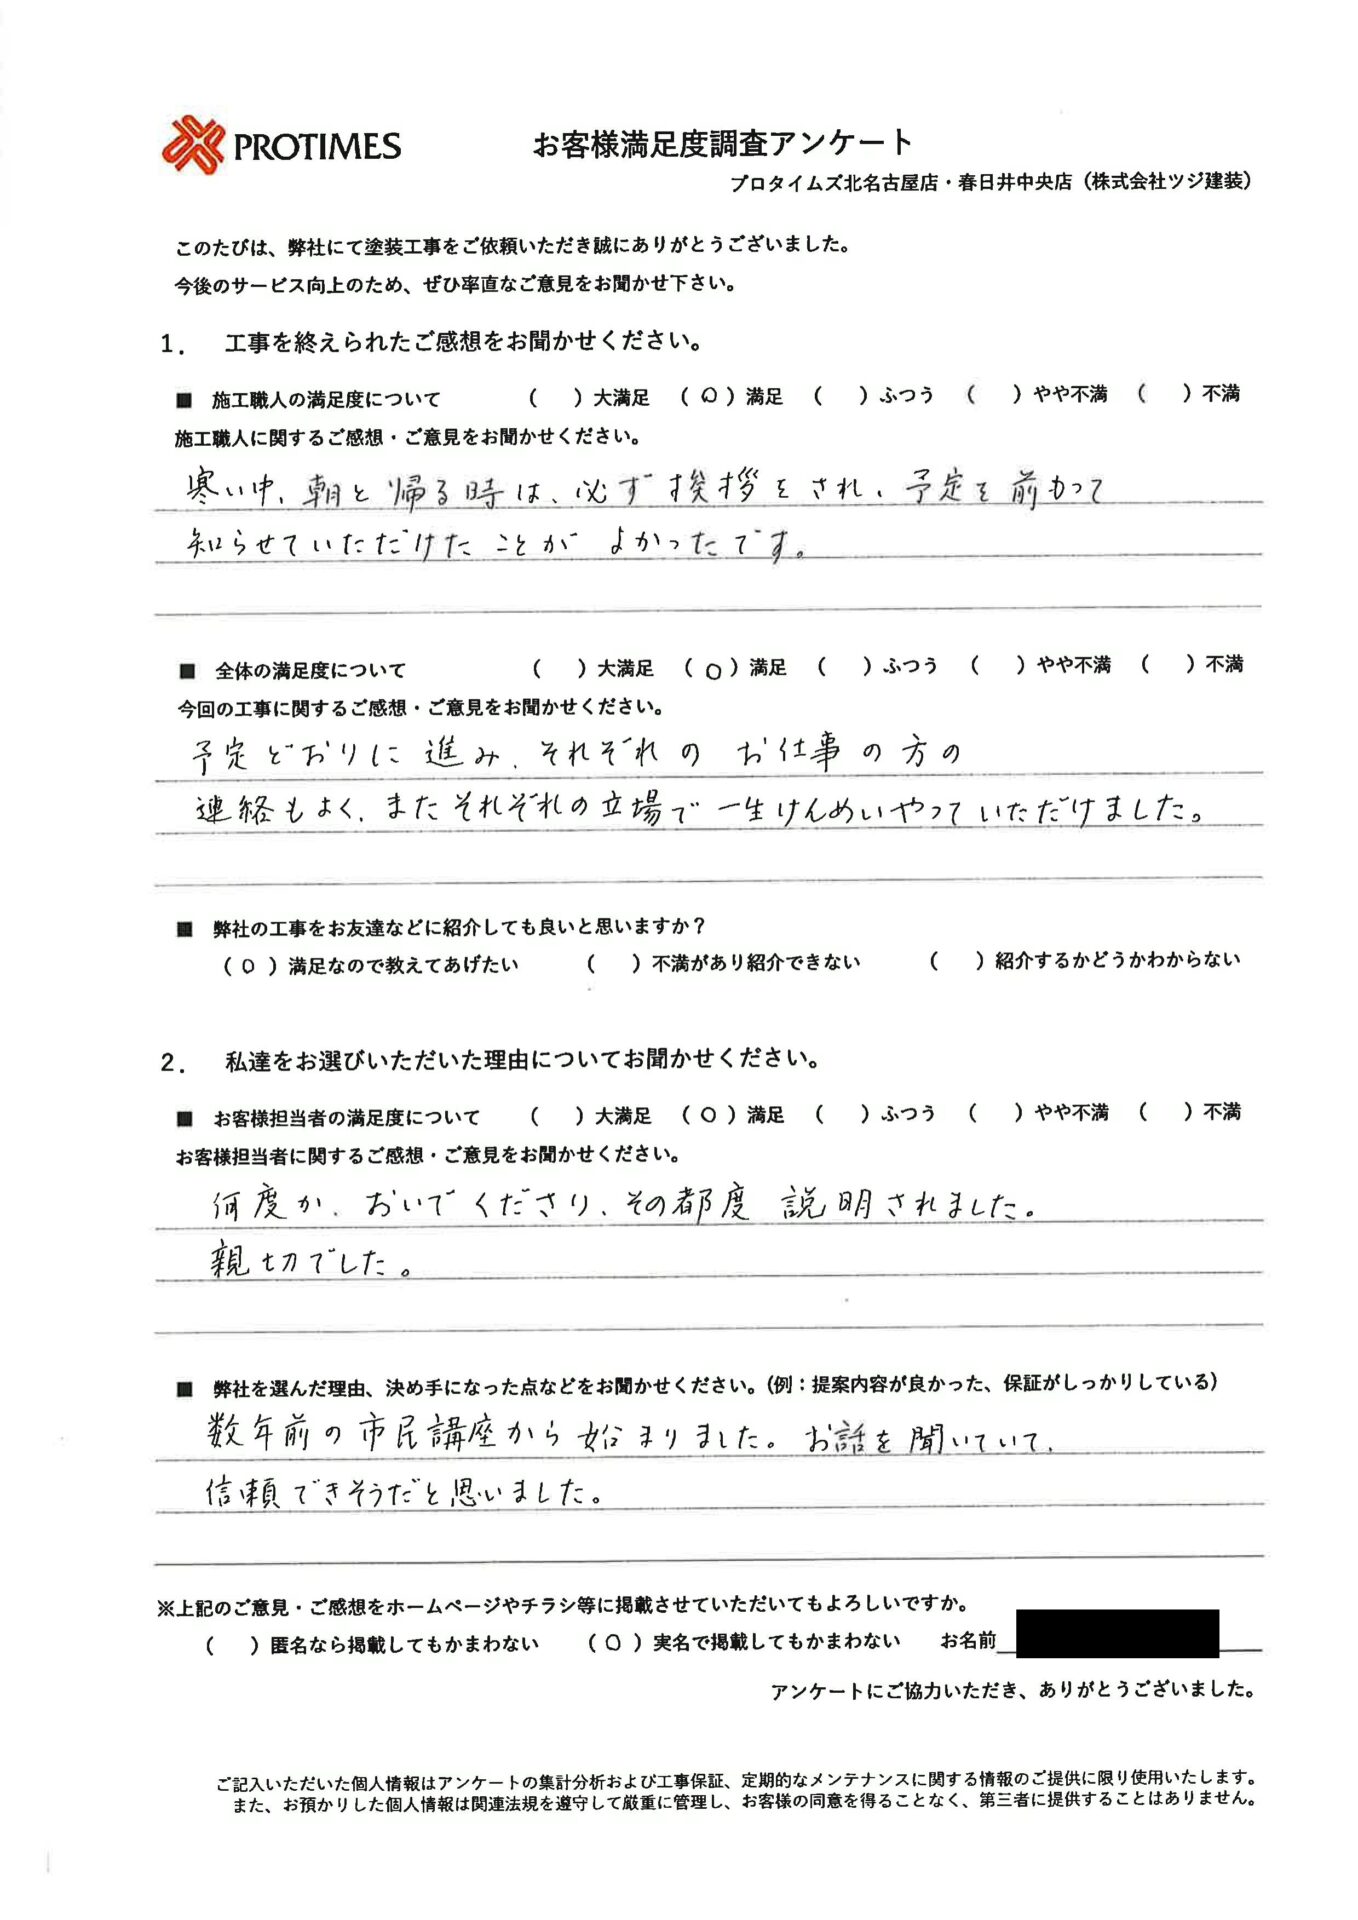 PROTIMES
お客様満足度調査アンケート
プロタイムズ北名古屋店・春日井中央店（株式会社ツジ建装）
このたびは、弊社にて塗装工事をご依頼いただき誠にありがとうございました。
今後のサービス向上のため、ぜひ率直なご意見をお聞かせ下さい。
1． 工事を終えられたご感想をお聞かせください。
■ 施工職人の満足度について （ ）大満足 （○）満足 （ ）ふつう （ ）やや不満 （ ）不満
施工職人に関するご感想・ご意見をお聞かせください。
寒い中、朝と帰る時は、必ず挨拶をされ、予定を前もって
知らせていただけたことが よかったです。
■ 全体の満足度について （ ）大満足 （○）満足 （ ）ふつう （ ）やや不満 （ ）不満
今回の工事に関するご感想・ご意見をお聞かせください。
予定どおりに進み、それぞれの お仕事の方の
連絡もよく、またそれぞれの立場で一生けんめいやっていただけました。
■ 弊社の工事をお友達などに紹介しても良いと思いますか？
（○）満足なので教えてあげたい （ ）不満があり紹介できない （ ）紹介するかどうかわからない
2． 私達をお選びいただいた理由についてお聞かせください。
■ お客様担当者の満足度について （ ）大満足 （○）満足 （ ）ふつう （ ）やや不満 （ ）不満
お客様担当者に関するご感想・ご意見をお聞かせください。
何度か、おいでくださり、その都度 説明されました。
親切でした。
■ 弊社を選んだ理由、決め手になった点などをお聞かせください。（例：提案内容が良かった、保証がしっかりしている）
数年前の市民講座から始まりました。お話を聞いていて、
信頼できそうだと思いました。
※上記のご意見・ご感想をホームページやチラシ等に掲載させていただいてもよろしいですか。
（ ）匿名なら掲載してもかまわない （○）実名で掲載してもかまわない お名前
アンケートにご協力いただき、ありがとうございました。
ご記入いただいた個人情報はアンケートの集計分析および工事保証、定期的なメンテナンスに関する情報のご提供に限り使用いたします。
また、お預かりした個人情報は関連法規を遵守して厳重に管理し、お客様の同意を得ることなく、第三者に提供することはありません。